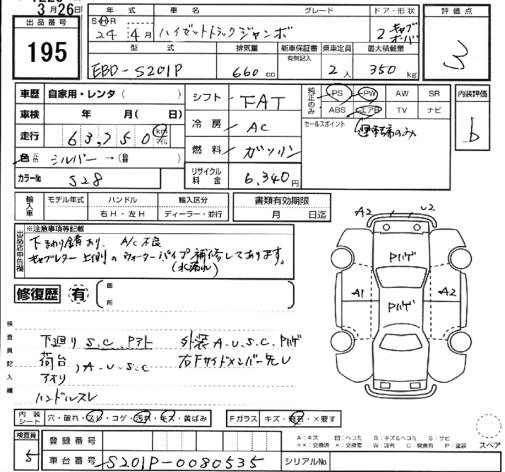 3月26日
出品番号
195
年式 車名 グレード ドア・形状 評価点
S・H・R 24年 4月 ハイゼットトラックジャンボ 2 キャブオーバー
3
型式 排気量 新車保証書 乗車定員 最大積載量
有無記入
EBD-S201P 660cc 2人 350kg
車歴 自家用・レンタ( )
車検 年 月( 日)
走行 63,750 km マイル
色 シルバー→
カラーNo S28
シフト FAT
冷房 AC
燃料 ガソリン
リサイクル料金 6,340円
純正のみ PS PW AW SR
ABS エアB TV ナビ
セールスポイント
運転席のみ
内装評価
b
輸入車 モデル年式 ハンドル 輸入区分
年 右H・左H ディーラー・並行
書類有効期限
月 日迄
出品店申告欄
※注意事項等記載
下まわり錆あり、A/C不良
キャブレター上側のウォーターパイプ補修してあります。
(水漏れ)
修復歴 有
箇所
A2 U2
Pハゲ
A1 Pハゲ A2
検査員記入欄
下廻りS.C.Pアト 外装A.U.S.C.Pハゲ
荷台、A.U.S.C 右下サイドメンバー先U
アオリ
ハンドルスレ
内装シート 穴・破れ・スレ・コゲ・汚れ・キズ・黄ばみ
Fガラス キズ・飛石・×要す
検査員
5
登録番号
車台番号 S201P-0080535
シリアルNo.
A:キズ U:ヘコミ B:キズ&ヘコミ S:サビ
××:交換済 X:交換要 W:波有 C:腐食有 P:塗装
スペア